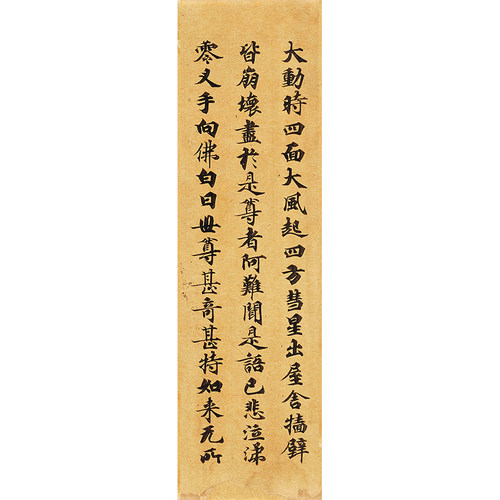 大動時四面大風起四方彗星出屋舍牆壁
皆崩壞盡於是尊者阿難聞是語已悲泣涕
零叉手向佛白曰世尊甚奇甚特如来无所